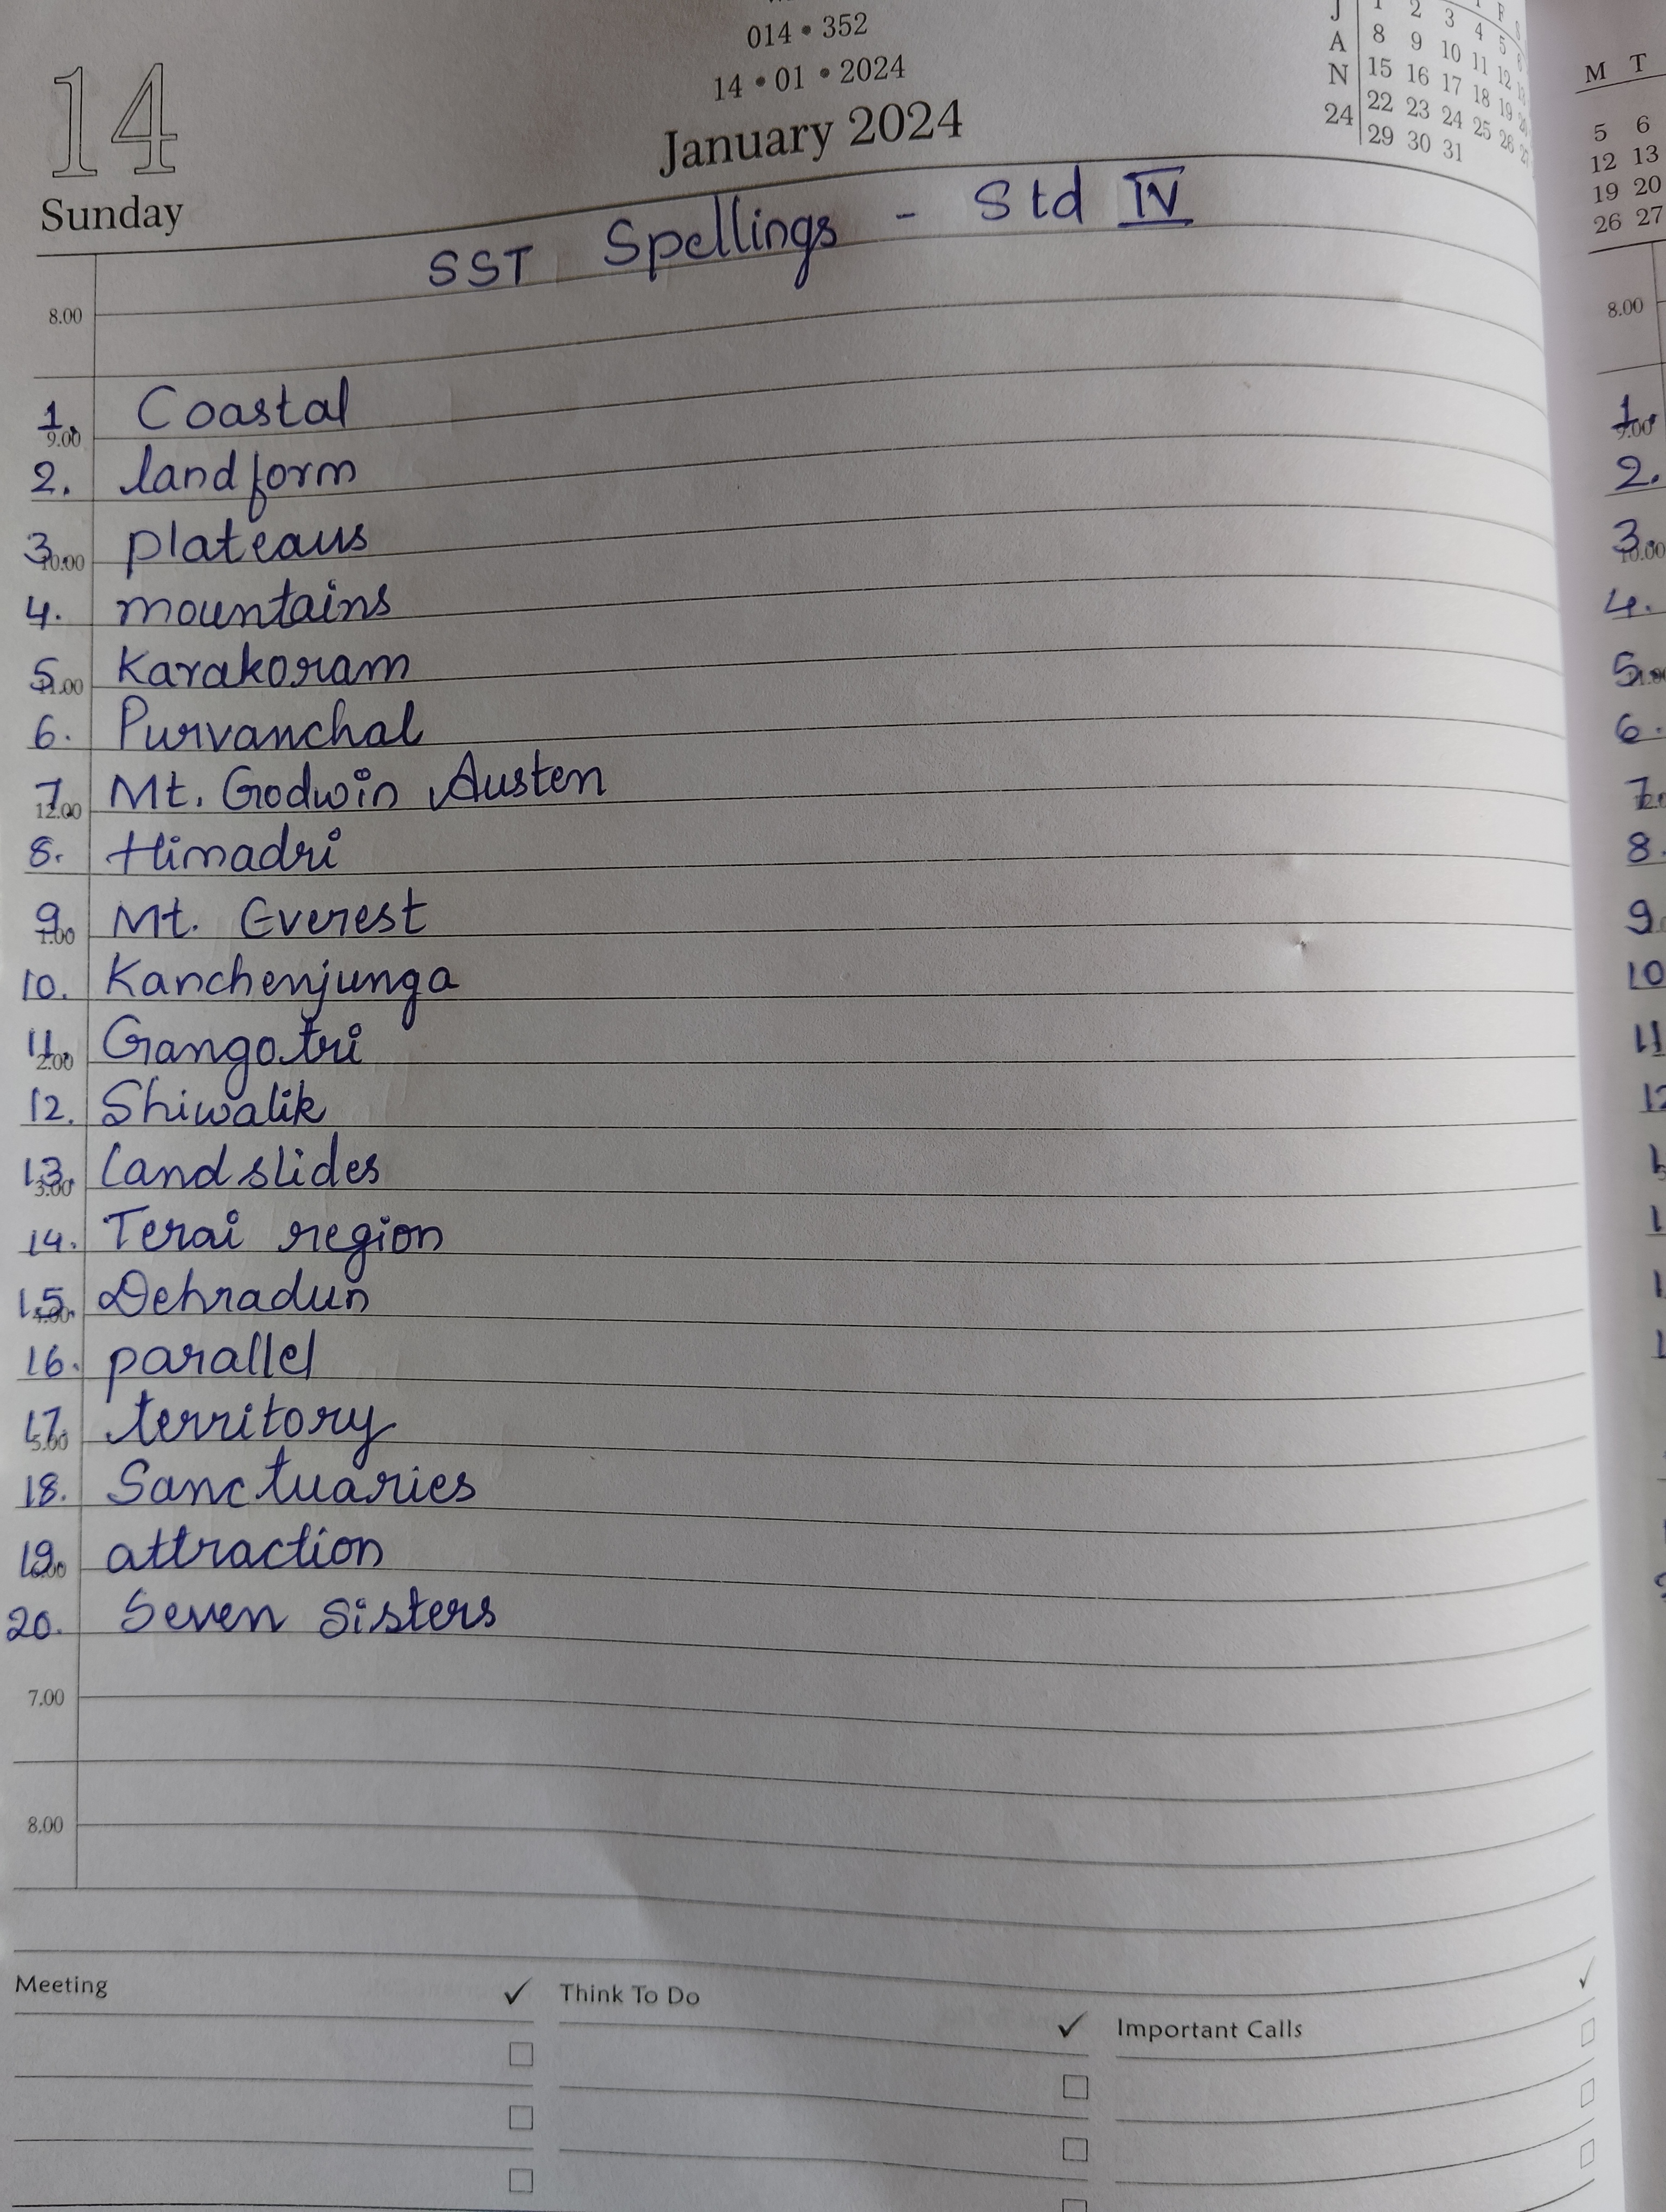 014 • 352
14 • 01 • 2024
January 2024
14
Sunday
J A N 24
1 2 3 4 5
8 9 10 11 12
15 16 17 18 19
22 23 24 25 26
29 30 31
M T
5 6
12 13
19 20
26 27
SST Spellings - Std IV
8.00
1. Coastal
9.00
2. landform
3. plateaus
10.00
4. mountains
5. Karakoram
11.00
6. Purvanchal
7. Mt. Godwin Austen
12.00
8. Himadri
9. Mt. Everest
1.00
10. Kanchenjunga
11. Gangotri
2.00
12. Shiwalik
13. Landslides
3.00
14. Terai region
15. Dehradun
4.00
16. parallel
17. territory
5.00
18. Sanctuaries
19. attraction
6.00
20. Seven Sisters
7.00
8.00
Meeting ✓ Think To Do ✓ Important Calls ✓
8.00
1.
9.00
2.
3.
10.00
4.
5.
6.
7.
8.
9.
10
11
12